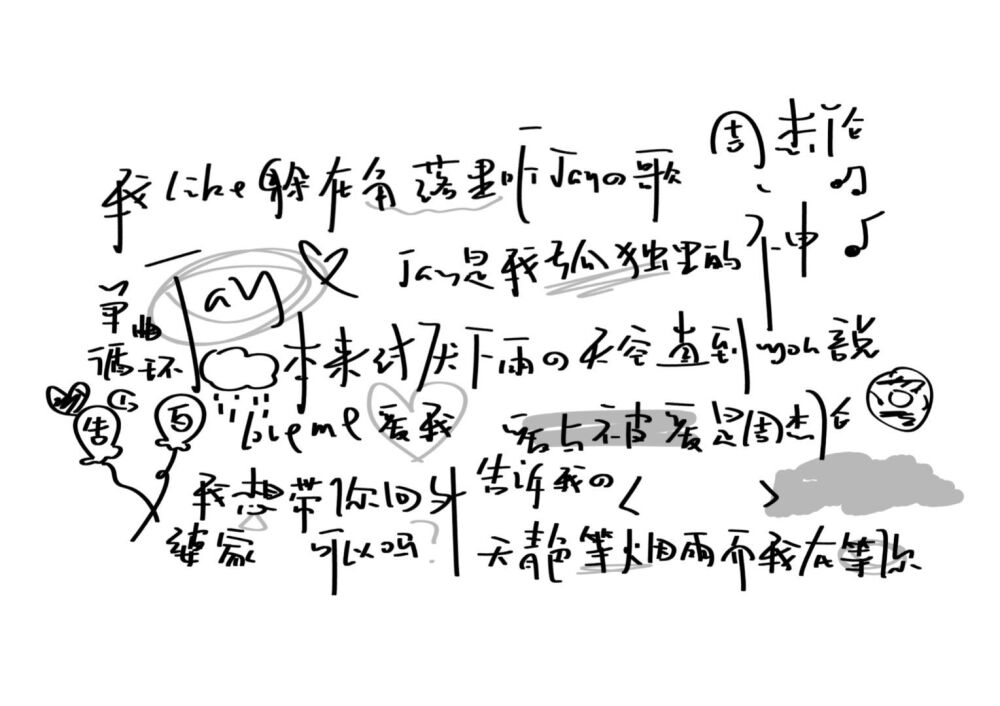 周杰伦
我like躲在角落里听Jayの歌
Jay是我孤独里的神
Jay
单曲
循环
本来讨厌下雨の天空直到you說
love me 爱我
爱与不被爱是周杰伦
告白
我想带你回外
婆家 可以吗?
告诉我の< >
天青色等烟雨而我在等你